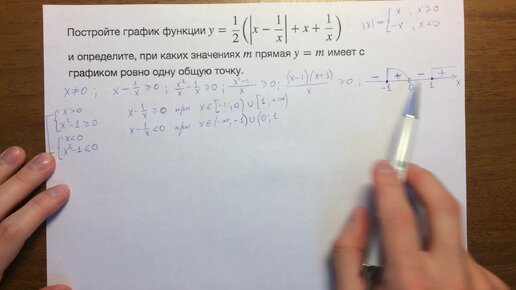 Постройте график функции y = 1/2 (|x − 1/x| + x + 1/x)
|x| = { x , x ≥ 0
−x , x < 0
и определите, при каких значениях m прямая y = m имеет с
графиком ровно одну общую точку.
x ≠ 0 ; x − 1/x ≥ 0 ; x²/x − 1/x ≥ 0 ; x²−1/x ≥ 0 ; (x−1)(x+1)/x ≥ 0 ; − + − +
−1 0 1 x
{ x > 0
x²−1 ≥ 0
{ x < 0
x²−1 ≤ 0
x − 1/x ≥ 0 при x ∈ [−1; 0) ∪ [1; +∞)
x − 1/x < 0 при x ∈ (−∞; −1) ∪ (0; 1